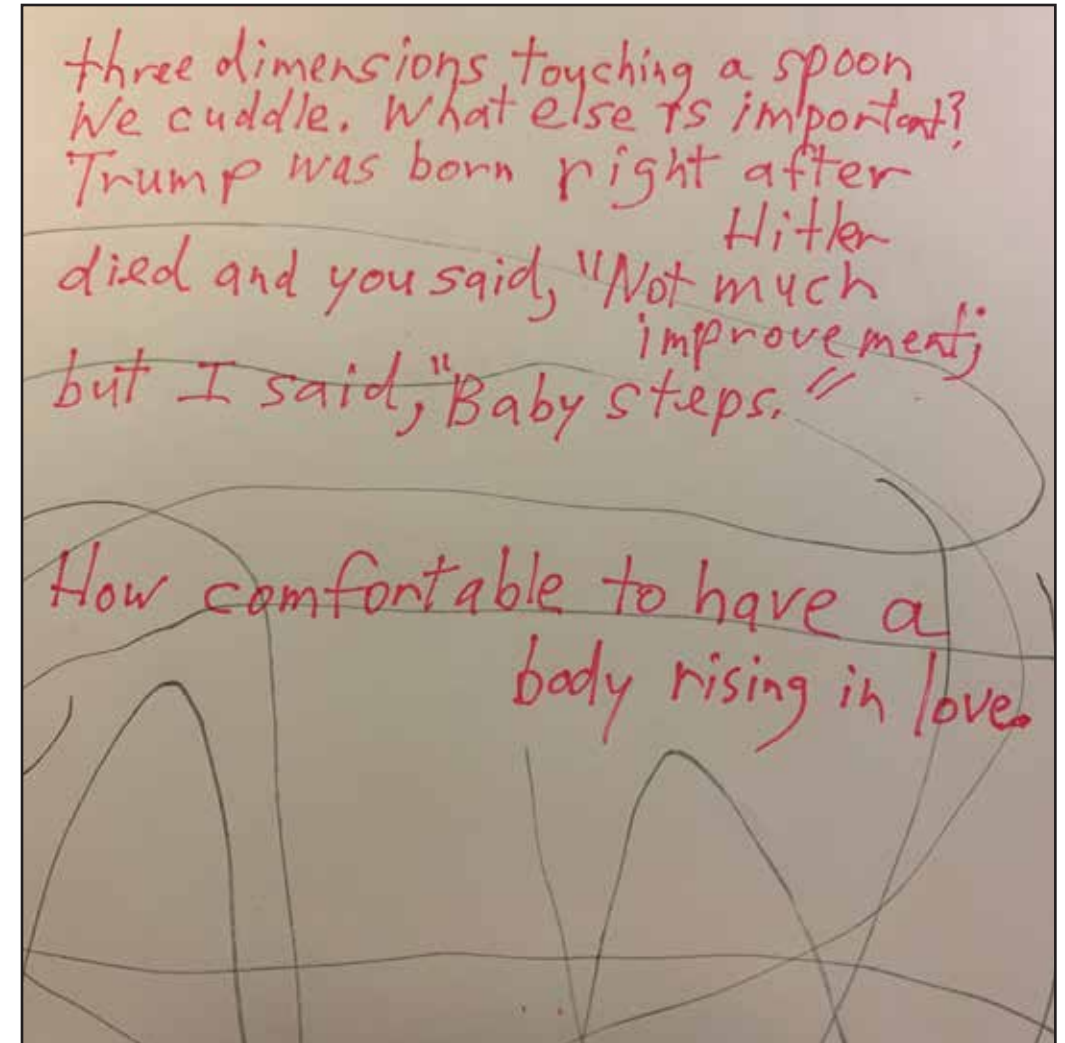 three dimensions touching a spoon
We cuddle. What else is important?
Trump was born right after
Hitler
died and you said, "Not much
improvement;
but I said, "Baby steps."
How comfortable to have a
body rising in love.